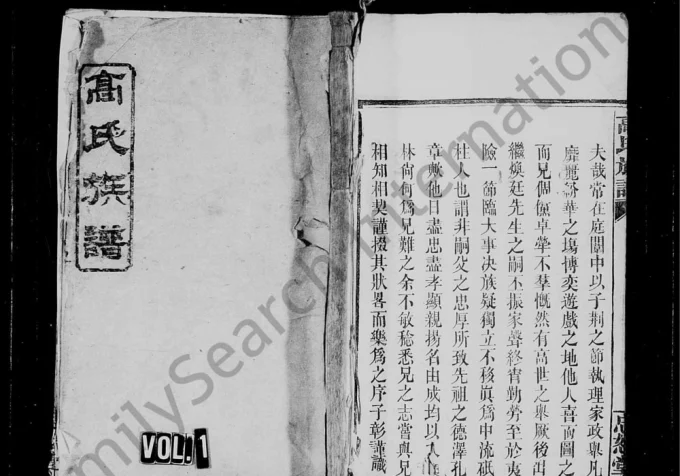 高氏族譜
VOL. 1
高氏族譜
夫哉常在庭闈中以子荆之節執理家政與
靡麗紛華之塲博奕遊戲之地他人喜而圖之
而兄倜儻卓犖不羣慨然有高世之
繼煥廷先生之嗣不振家聲終胄勤勞至於夷
險一節臨大事决族疑獨立不移眞為中流砥
柱人也謂非嗣父之忠厚所致先祖之德澤孔
章歟他日盡忠盡孝顯親揚名由成均以入
林尙何為兄難之余不敏稔悉兄之志嘗與兄
相知相契謹掇其狀畧而樂為之序子彰謹識
milySearch International